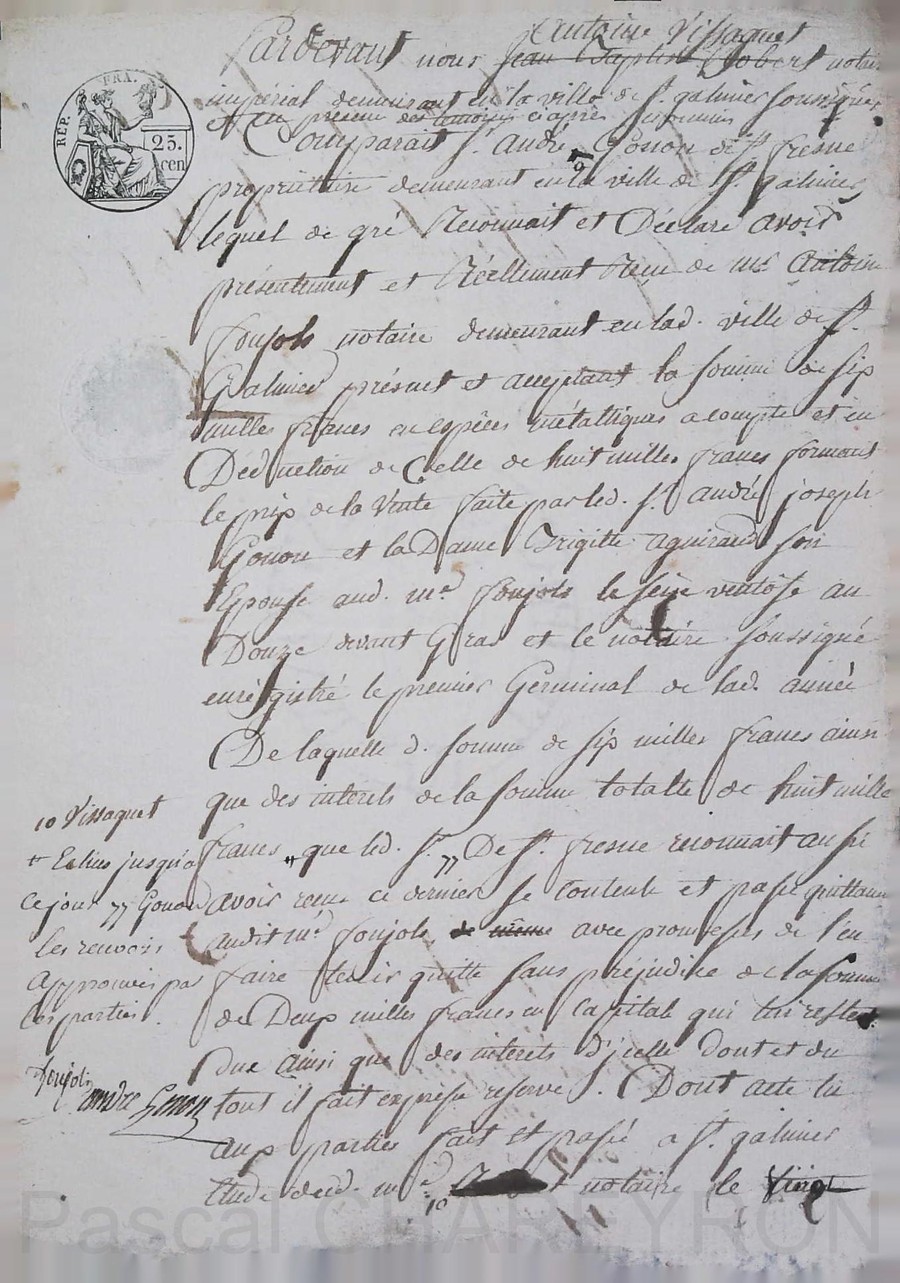 RÉP. FRA.
25.
cen
Antoine Vissaguet
Pardevant nous Jean Baptiste Robert notaire
impérial demeurant en la ville de St. galmier soussigné
et en présence des témoins ci après
Comparait Sr. André Gonon de St. fresne
propriétaire demeurant en la ville de St. galmier
lequel de gré Reconnait et Déclare avoir
présentement et Réellement Recu de me. Antoine
Joujols notaire demeurant en lad. ville de St.
Galmier présent et acceptant la somme de six
milles francs en espèces métalliques acompte et en
Déduction de Celle de huit milles francs formant
le prix de la Vente faite par led. Sr. André joseph
Gonon et la Dame Brigitte aguiraud son
Epouse aud. me. Joujols le seize ventôse an
Douze devant Gras et le notaire soussigné
enrégistré le premier Germinal de lad. année
De laquelle d. somme de six milles francs ainsi
que des interets de la somme totalle de huit mille
francs que led. Sr. De St. fresne reconnait aussi
avoir recu ce dernier se Contente et passe quittance
audit me. Joujols de même avec promesses de l'en
faire tenir quitte sans préjudice de la somme
de Deux milles francs en Capital qui lui restent
due ainsi que des interets d'jcelle dont et du
tout il fait expresse reserve. Dont acte lu
aux parties fait et passé a St. galmier
Etude dud. me. notaire le vingt
10 Vissaguet
Echus jusqu'a
ce jour Gonon
les renvois
approuvés par
les parties.
Joujols
andre Gonon
10
Pascal CHAREYRON